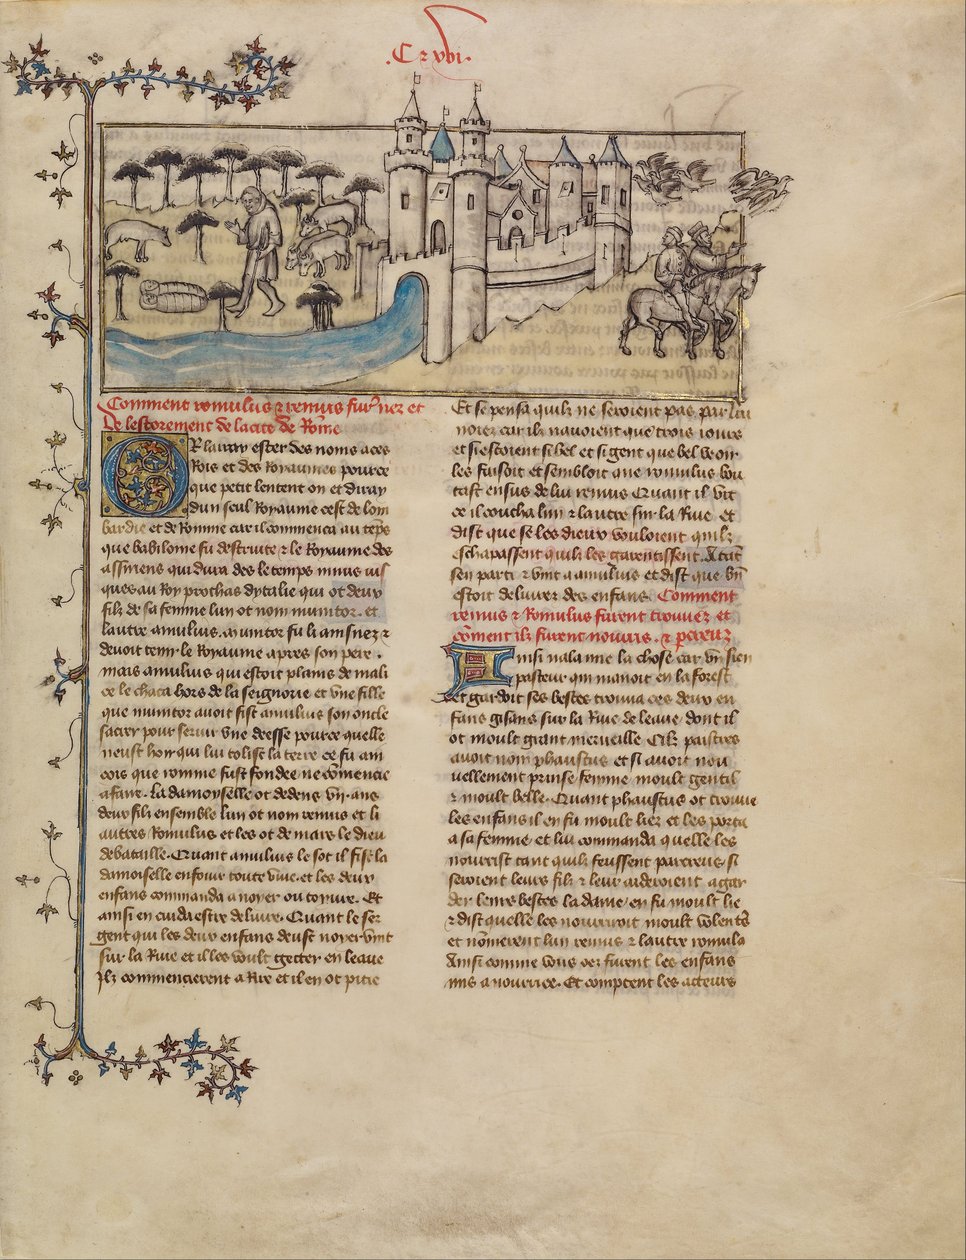 .C & xvi.
Comment romulus & remus furent nez et
De lestorement de la cite de Rome
OR laray ester des noms aces
Rois et des Royaumes pource
que petit lentent on et diray
dun seul Royaume cest de lom
bardie et de Romme car il commenca au teps
que babiloine fu destruite & le Royaume des
assiriens qui dura des le temps ninus jus
ques au Roy prochas dytalie qui ot deux
filz de sa femme lun ot nom numitor. et
lautre amulius. Numitor fu li ainsnez &
devoit tenir le Royaume apres son pere.
mais amulius qui estoit plains de mali
ce le chaca hors de la seignorie et vne fille
que numitor auoit fist amulius son oncle
sacrer pour seruir vne deesse pource quelle
neust hoir qui lui tolist la terre ce fu ain
cois que romme fust fondee ne comencie
a faire. La damoyselle ot dedens vn. ans
deux filz ensemble lun ot nom remus et li
autres Romulus et les ot de mars le dieu
de bataille. Quant amulius le sot il fist la
damoiselle enfouir toute viue. et les deux
enfans commanda a noyer ou torure. Et
ainsi en cuida estre deliure. Quant le ser
gent qui les deux enfans deust noyer vint
sur la Riue et il les voult getter en leaue
Ilz commencierent a Rire et il en ot pitie
Et se pensa quilz ne seroient pas par lui
noiez car ilz nauoient que trois jours
et si estoient si bel et si gent que bel veoir
les faisoit et sembloit que romulus bou
tast ensus de lui remus Quant il vit
ce il coucha lun & lautre sur la Riue et
dist que se les dieux vouloient quilz
eschapassent quilz les garentissent. A tant
sen parti & vint a amulius et dist que bn
estoit deliurez des enfans. Comment
remus & Romulus furent trouuez et
coment ilz furent nourris. & pereuz
Ainsi nala mie la chose car vn sien
pasteur qui manoit en la forest
et gardoit ses bestes trouua ces deux en
fans gisans sur la Riue de leaue. dont il
ot moult grant merueille Cilz paistres
auoit nom phaustus et si auoit nou
uellement prinse femme moult gentil
& moult belle. Quant phaustus ot trouue
les enfans il en fu moult liez et les porta
a sa femme et lui commanda quelle les
nourrist tant quilz feussent parcreus. si
seroient leurs filz & leur aideroient a gar
der leurs bestes la dame en fu moult lie
& dist quelle les nourriroit moult volentes
et nommerent lun remus & lautre romulus
Ainsi comme vous oez furent les enfans
mis a nourrice. Et comptent les acteurs